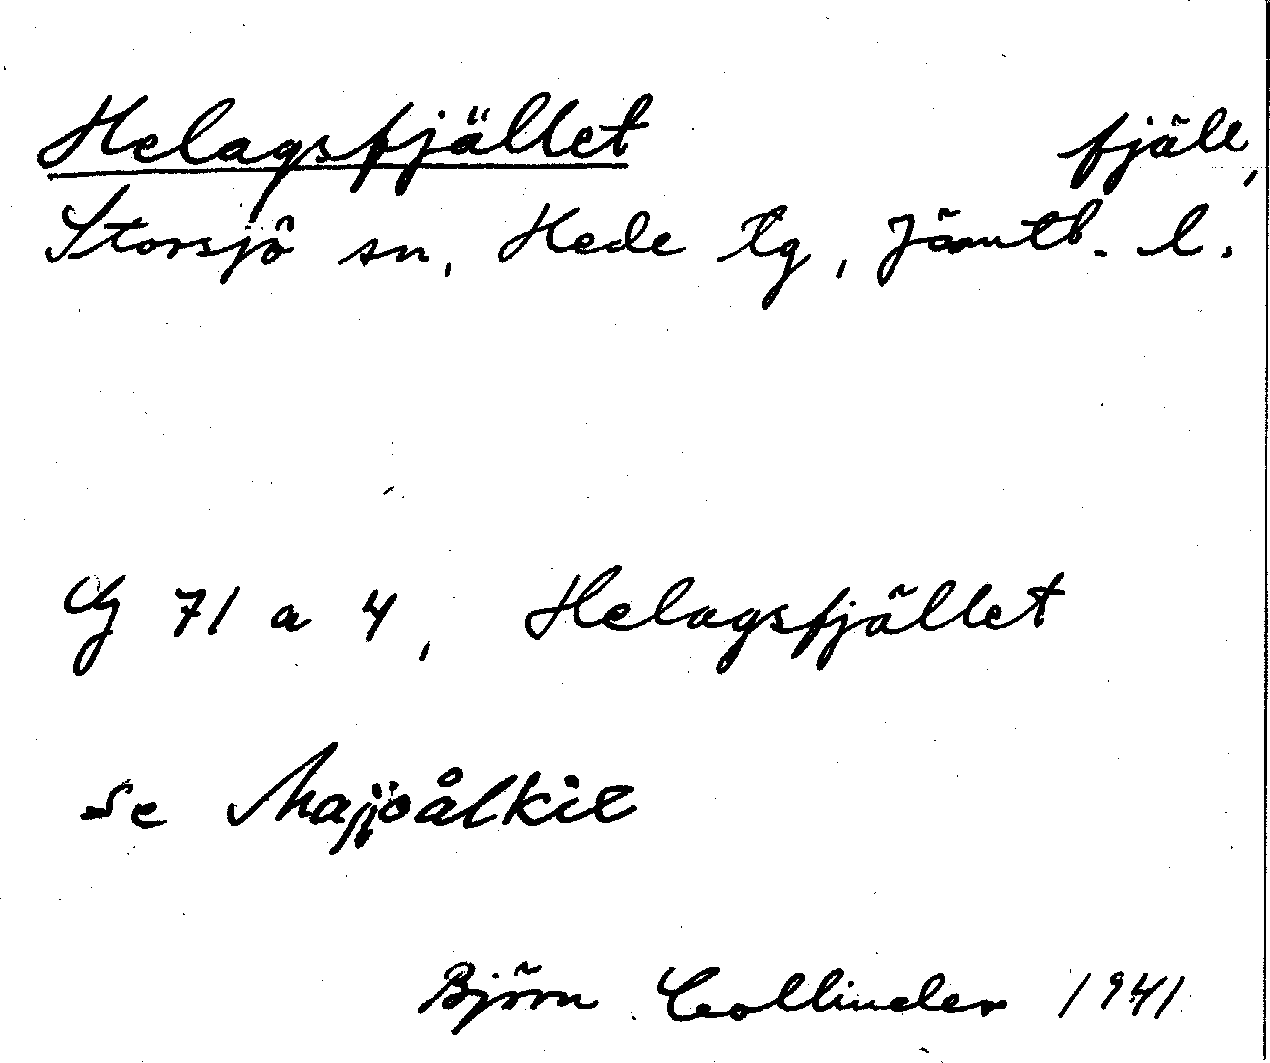 Helagsfjället fjäll,
Storsjö sn, Hede tg, Jämtl. l.
Cg 71 a 4, Helagsfjället
se Majjoålkie
Björn Collinder 1941